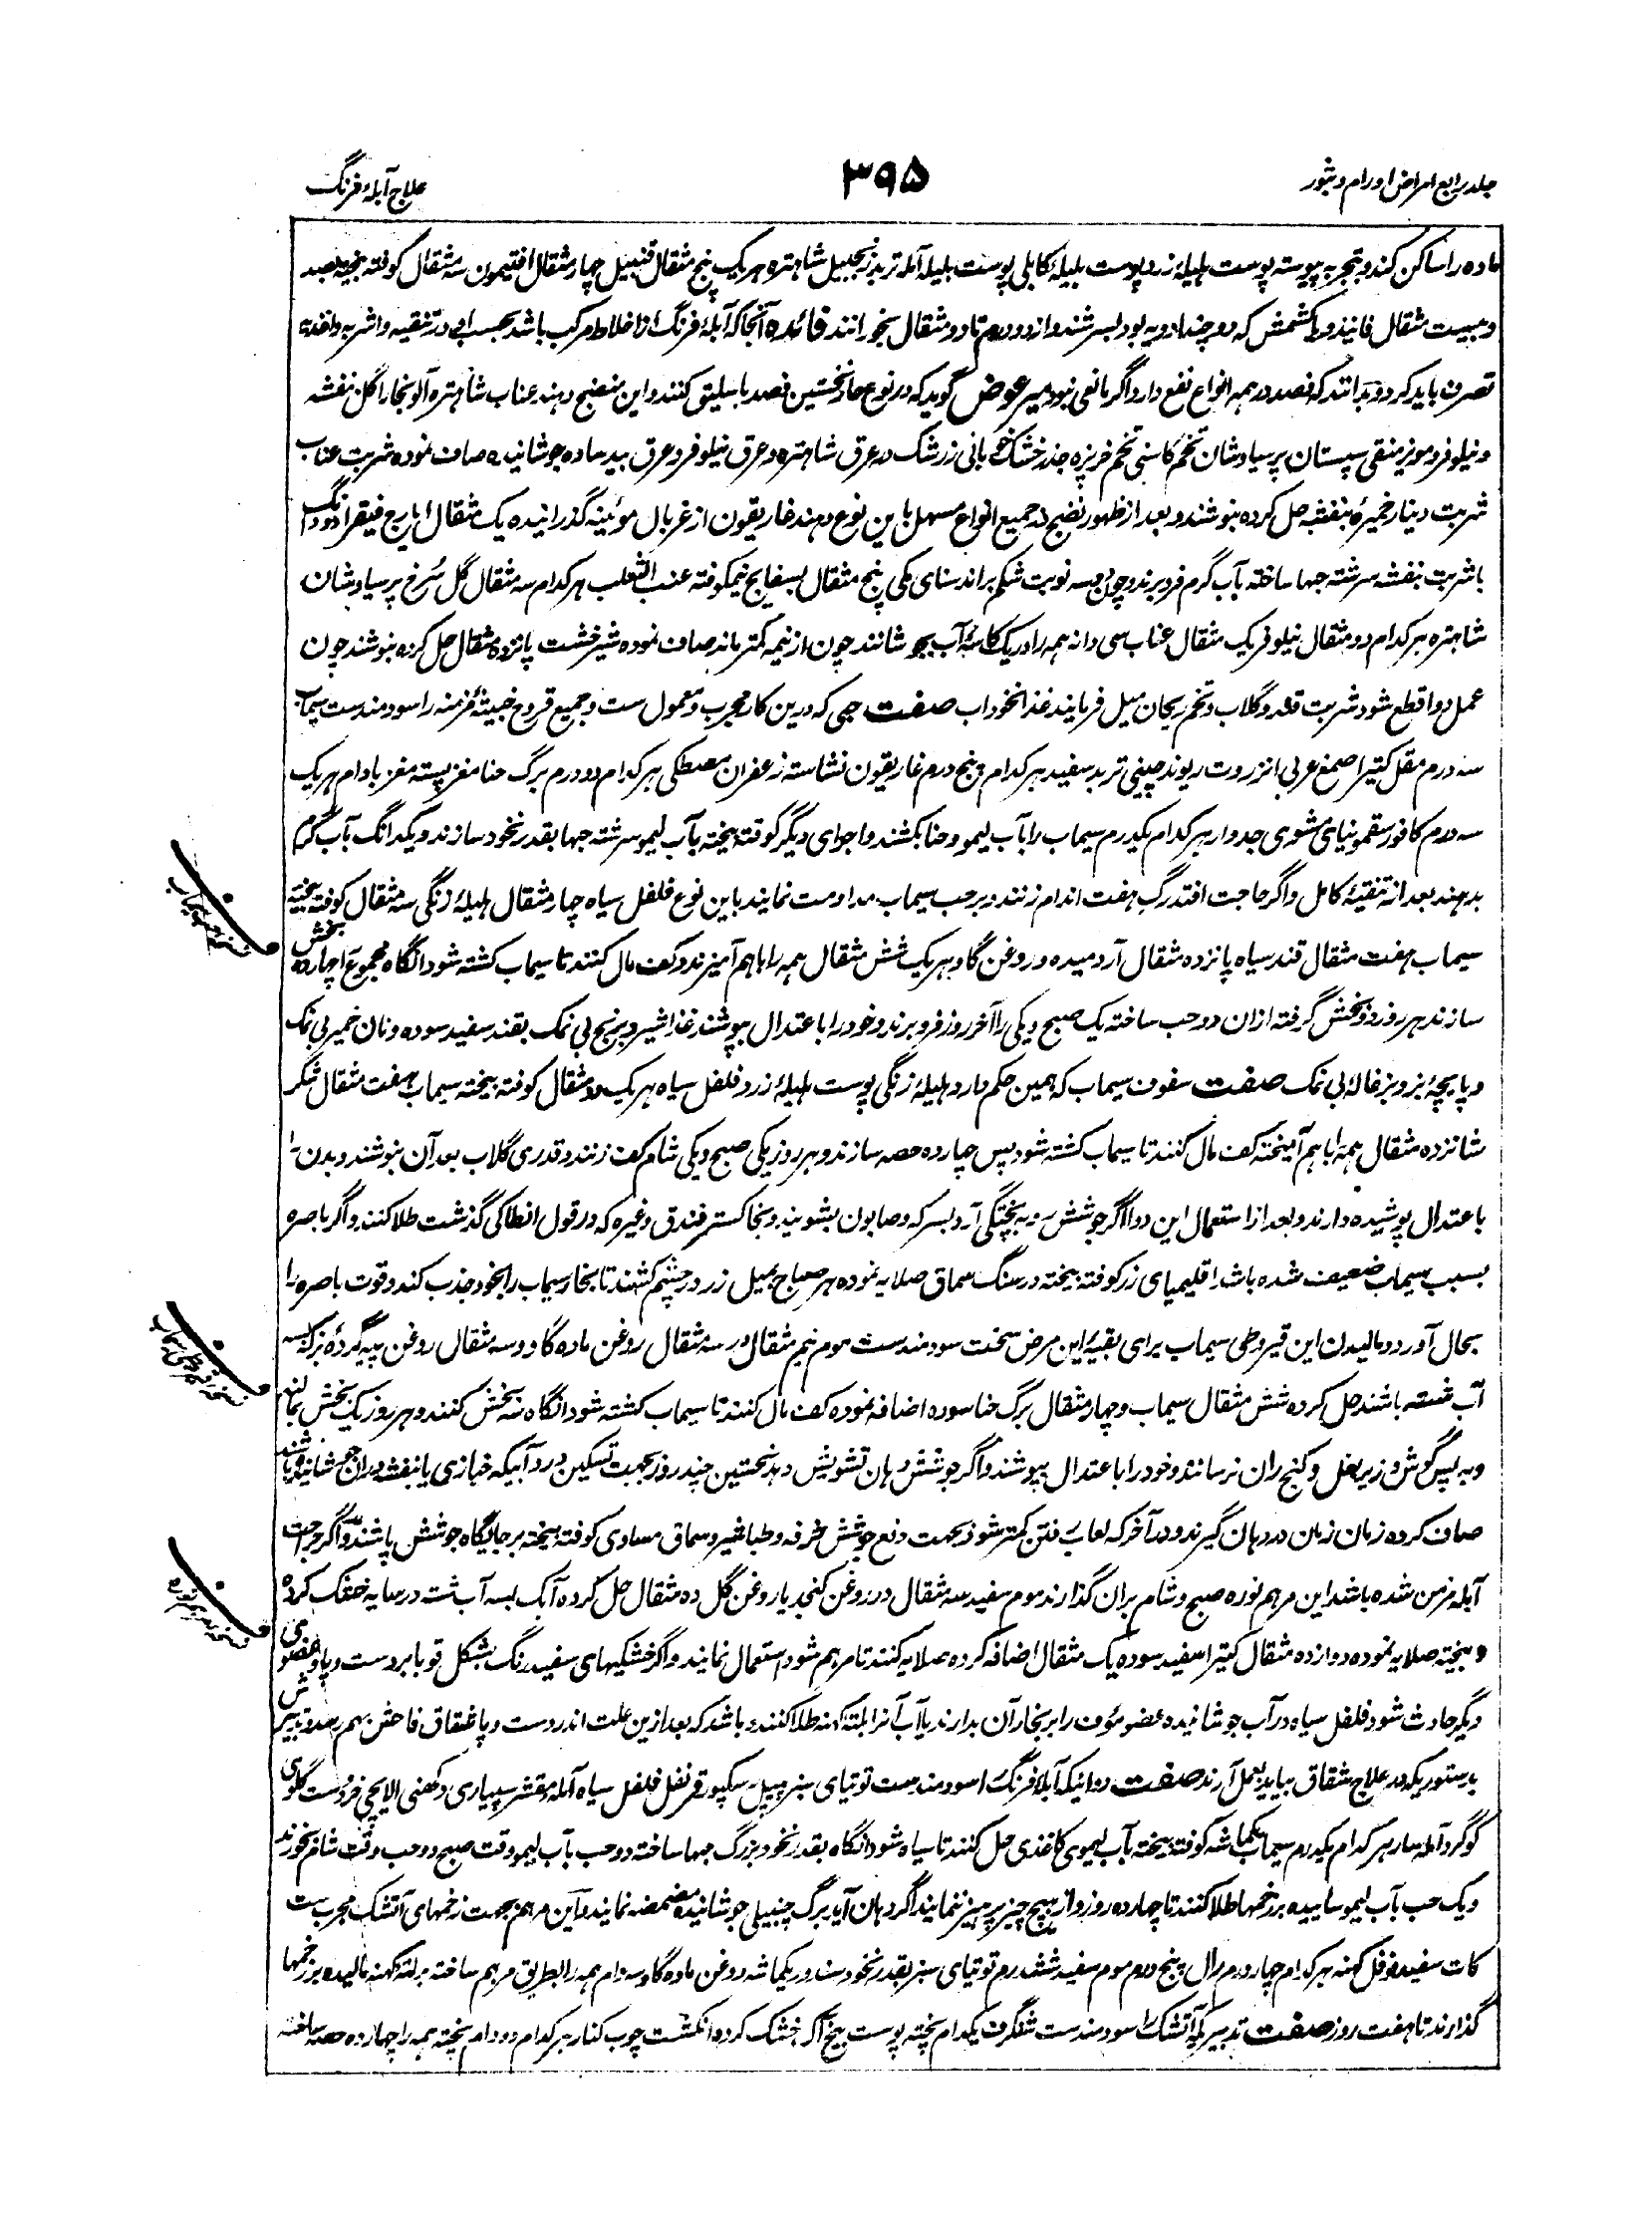 جلد رابع امراض اورام و بثور
۳۹۵
علاج آبلهٔ فرنگ
ماده را ساکن کند و بتجربه پیوسته پوست هلیلهٔ زرد پوست بلیله کابلی پوست بلیله آمله تربد زنجبیل شاهتره هر یک پنج مثقال قنبیل چهار مثقال افتیمون سه مثقال کوفته بیخته بصد
و بیست مثقال فانیذ و یا کشمش که دو چند ادویه بود بسرشند و از دو درم تا دو مثقال بخورانند فائده آنجا که آبلهٔ فرنگ از اخلاط مرکب باشد بحسب آن در تنقیه و اشربه و اغذیه
تصرف باید کرد و بدانند که فصد در همه انواع نفع دارد اگر مانعی نبود میر عوض گوید که در نوع حار نخستین فصد باسلیق کنند و این منضج دهند عناب شاهتره آلو بخارا گل بنفشه
و نیلوفر و مویز منقی سپستان پرسیاوشان تخم کاسنی تخم خربزه جندر خشک خوبانی زرشک در عرق شاهتره و عرق نیلوفر و عرق بید ساده جوشانیده صاف نموده شربت عناب
شربت دینار خمیرهٔ بنفشه حل کرده بنوشند و بعد از ظهور نضج در جمیع انواع مسهل باین نوع دهند غاریقون از غربال موئینه گذرانیده یک مثقال ایارج فیقرا دو دانگ
با شربت بنفشه سرشته حبها ساخته بآب گرم فرو برند و چون دو سه نوبت شکم براند سنای مکی پنج مثقال بسفایج نیمکوفته عنب الثعلب هر کدام سه مثقال گل سرخ پرسیاوشان
شاهتره هر کدام دو مثقال نیلوفر یک مثقال عناب سی دانه همه را در یک کاسه آب بجوشانند چون از نیمه کمتر ماند صاف نموده شیرخشت پانزده مثقال حل کرده بنوشند چون
عمل دوا قطع شود شربت قند و گلاب و تخم ریحان میل فرمایند غذا نخوداب صفت حبی که درین کار مجرب و معمول ست و جمیع قروح خبیثهٔ مزمنه را سودمند ست سیماب
سه درم مقل کتیرا صمغ عربی انزروت ریوند چینی تربد سفید هر کدام پنج درم غاریقون نشاسته زعفران مصطکی هر کدام دو درم برگ حنا مغز پسته مغز بادام هر یک
سه درم کافور سقمونیای مشوی جدوار هر کدام یکدرم سیماب را بآب لیمو و حنا بکشند و اجزای دیگر کوفته بیخته بآب لیمو سرشته حبها بقدر نخود سازند و یکدانگ بآب گرم
بدهند بعد از تنقیهٔ کامل و اگر حاجت افتد رگ هفت اندام زنند و بر حب سیماب مداومت نمایند باین نوع فلفل سیاه چار مثقال هلیلهٔ زنگی سه مثقال کوفته بیخته
سیماب هفت مثقال قند سیاه پانزده مثقال آرد میده و روغن گاو هر یک شش مثقال همه را باهم آمیزند و کف مال کنند تا سیماب کشته شود انگاه مجموع را چهارده بخش
سازند هر روز دو بخش گرفته ازان دو حب ساخته یک صبح و یکی را آخر روز فرو برند و خود را باعتدال بپوشند غذا شیر و برنج بی نمک بقند سفید سوده و نان خمیر بی نمک
و پاچهٔ بز و بزغاله بی نمک صفت سفوف سیماب که همین حکم دارد هلیلهٔ زنگی پوست هلیلهٔ زرد فلفل سیاه هر یک دو مثقال کوفته بیخته سیماب هفت مثقال شکر
شانزده مثقال همه را باهم آمیخته کف مال کنند تا سیماب کشته شود پس چهارده حصه سازند و هر روز یکی صبح و یکی شام کف زنند و قدری گلاب بعد آن بنوشند و بدن را
باعتدال پوشیده دارند و بعد از استعمال این دوا اگر جوشش رو به پختگی آرد بسرکه و صابون بشویند و بخاکستر فندق وغیره که در قول انطاکی گذشت طلا کنند و اگر باصره
بسبب سیماب ضعیف شده باشد اقلیمیای زر کوفته بیخته در سنگ سماق صلایه نموده هر صباح بمیل زر در چشم کشند تا بخار سیماب را بخود جذب کند و قوت باصره را
بحال آورد و مالیدن این قیروطی سیماب برای بقیهٔ این مرض سخت سودمند ست موم نیم مثقال در سه مثقال روغن ماده گاو و سه مثقال روغن پیه گردهٔ بز که بسه
آب شسته باشند حل کرده شش مثقال سیماب و چهار مثقال برگ حنا سوده اضافه نموده کف مال کنند تا سیماب کشته شود انگاه سه بخش کنند و هر روز یک بخش بمالند
و به پس گوش و زیر بغل و کنج ران نرسانند و خود را باعتدال بپوشند و اگر جوشش دهان تشویش دهد نخستین چند روز بجهت تسکین درد آبیکه خبازی یا بنفشه دران جوشانیده باشند
صاف کرده زمان زمان در دهان گیرند و در آخر که لعاب رفتن کمتر شود بجهت دفع جوشش طرفه و طباشیر و سماق مساوی کوفته بیخته بر جایگاه جوشش پاشند و اگر جراحت
آبله مزمن شده باشد این مرهم نوره صبح و شام بران گذارند موم سفید سه مثقال در روغن کنجد یا روغن گل ده مثقال حل کرده آهک بسه آب شسته در سایه خشک کرده
و بیخته صلایه نموده دوازده مثقال کتیرا سفید سوده یک مثقال اضافه کرده صلایه کنند تا مرهم شود استعمال نمایند و اگر خشکیهای سفید رنگ بشکل قوبا بر دست و پا و عضوی
دیگر حادث شود فلفل سیاه در آب جوشانیده عضو مؤف را بر بخار آن بدارند یا آب آنرا بلته کهنه طلا کنند و باشد که بعد ازین علت اندر دست و پا شقاق فاحش بهم رسد تدبیرش
بدستوریکه در علاج شقاق بیاید بعمل آرند صفت دوائیکه آبلهٔ فرنگ را سودمند ست توتیای سبز پیپل سکپور قرنفل فلفل سیاه آمله مقشر سپیاری دکهنی الایچی خرد ست گلوی
گوگرد آمله سار هر کدام یکدرم سیماب یکماشه کوفته بیخته بآب لیموی کاغذی حل کنند تا سیاه شود انگاه بقدر نخود بزرگ حبها ساخته دو حب بآب لیمو وقت صبح و دو حب وقت شام بخورند
و یک حب بآب لیمو ساییده بر زخمها طلا کنند تا چهارده روز و از هیچ چیز پرهیز ننمایند اگر دهان آید برگ چنبیلی جوشانیده مضمضه نمایند و این مرهم بجهت زخمهای آتشک مجرب ست
کات سفید فوفل کهنه هر کدام چهار درم رال پنج درم موم سفید ششدرم توتیای سبز بقدر نخود سندور یکماشه روغن ماده گاو سه دام همه را بطریق مرهم ساخته بر لته کهنه مالیده بر زخمها
گذارند تا هفت روز صفت تدبیریکه آتشک را سودمند ست شنگرف یکدام پخته پوست بیخ آکه خشک کرده انگشت چوب کنار هر کدام دو دام پخته همه را چهارده حصه ساخته